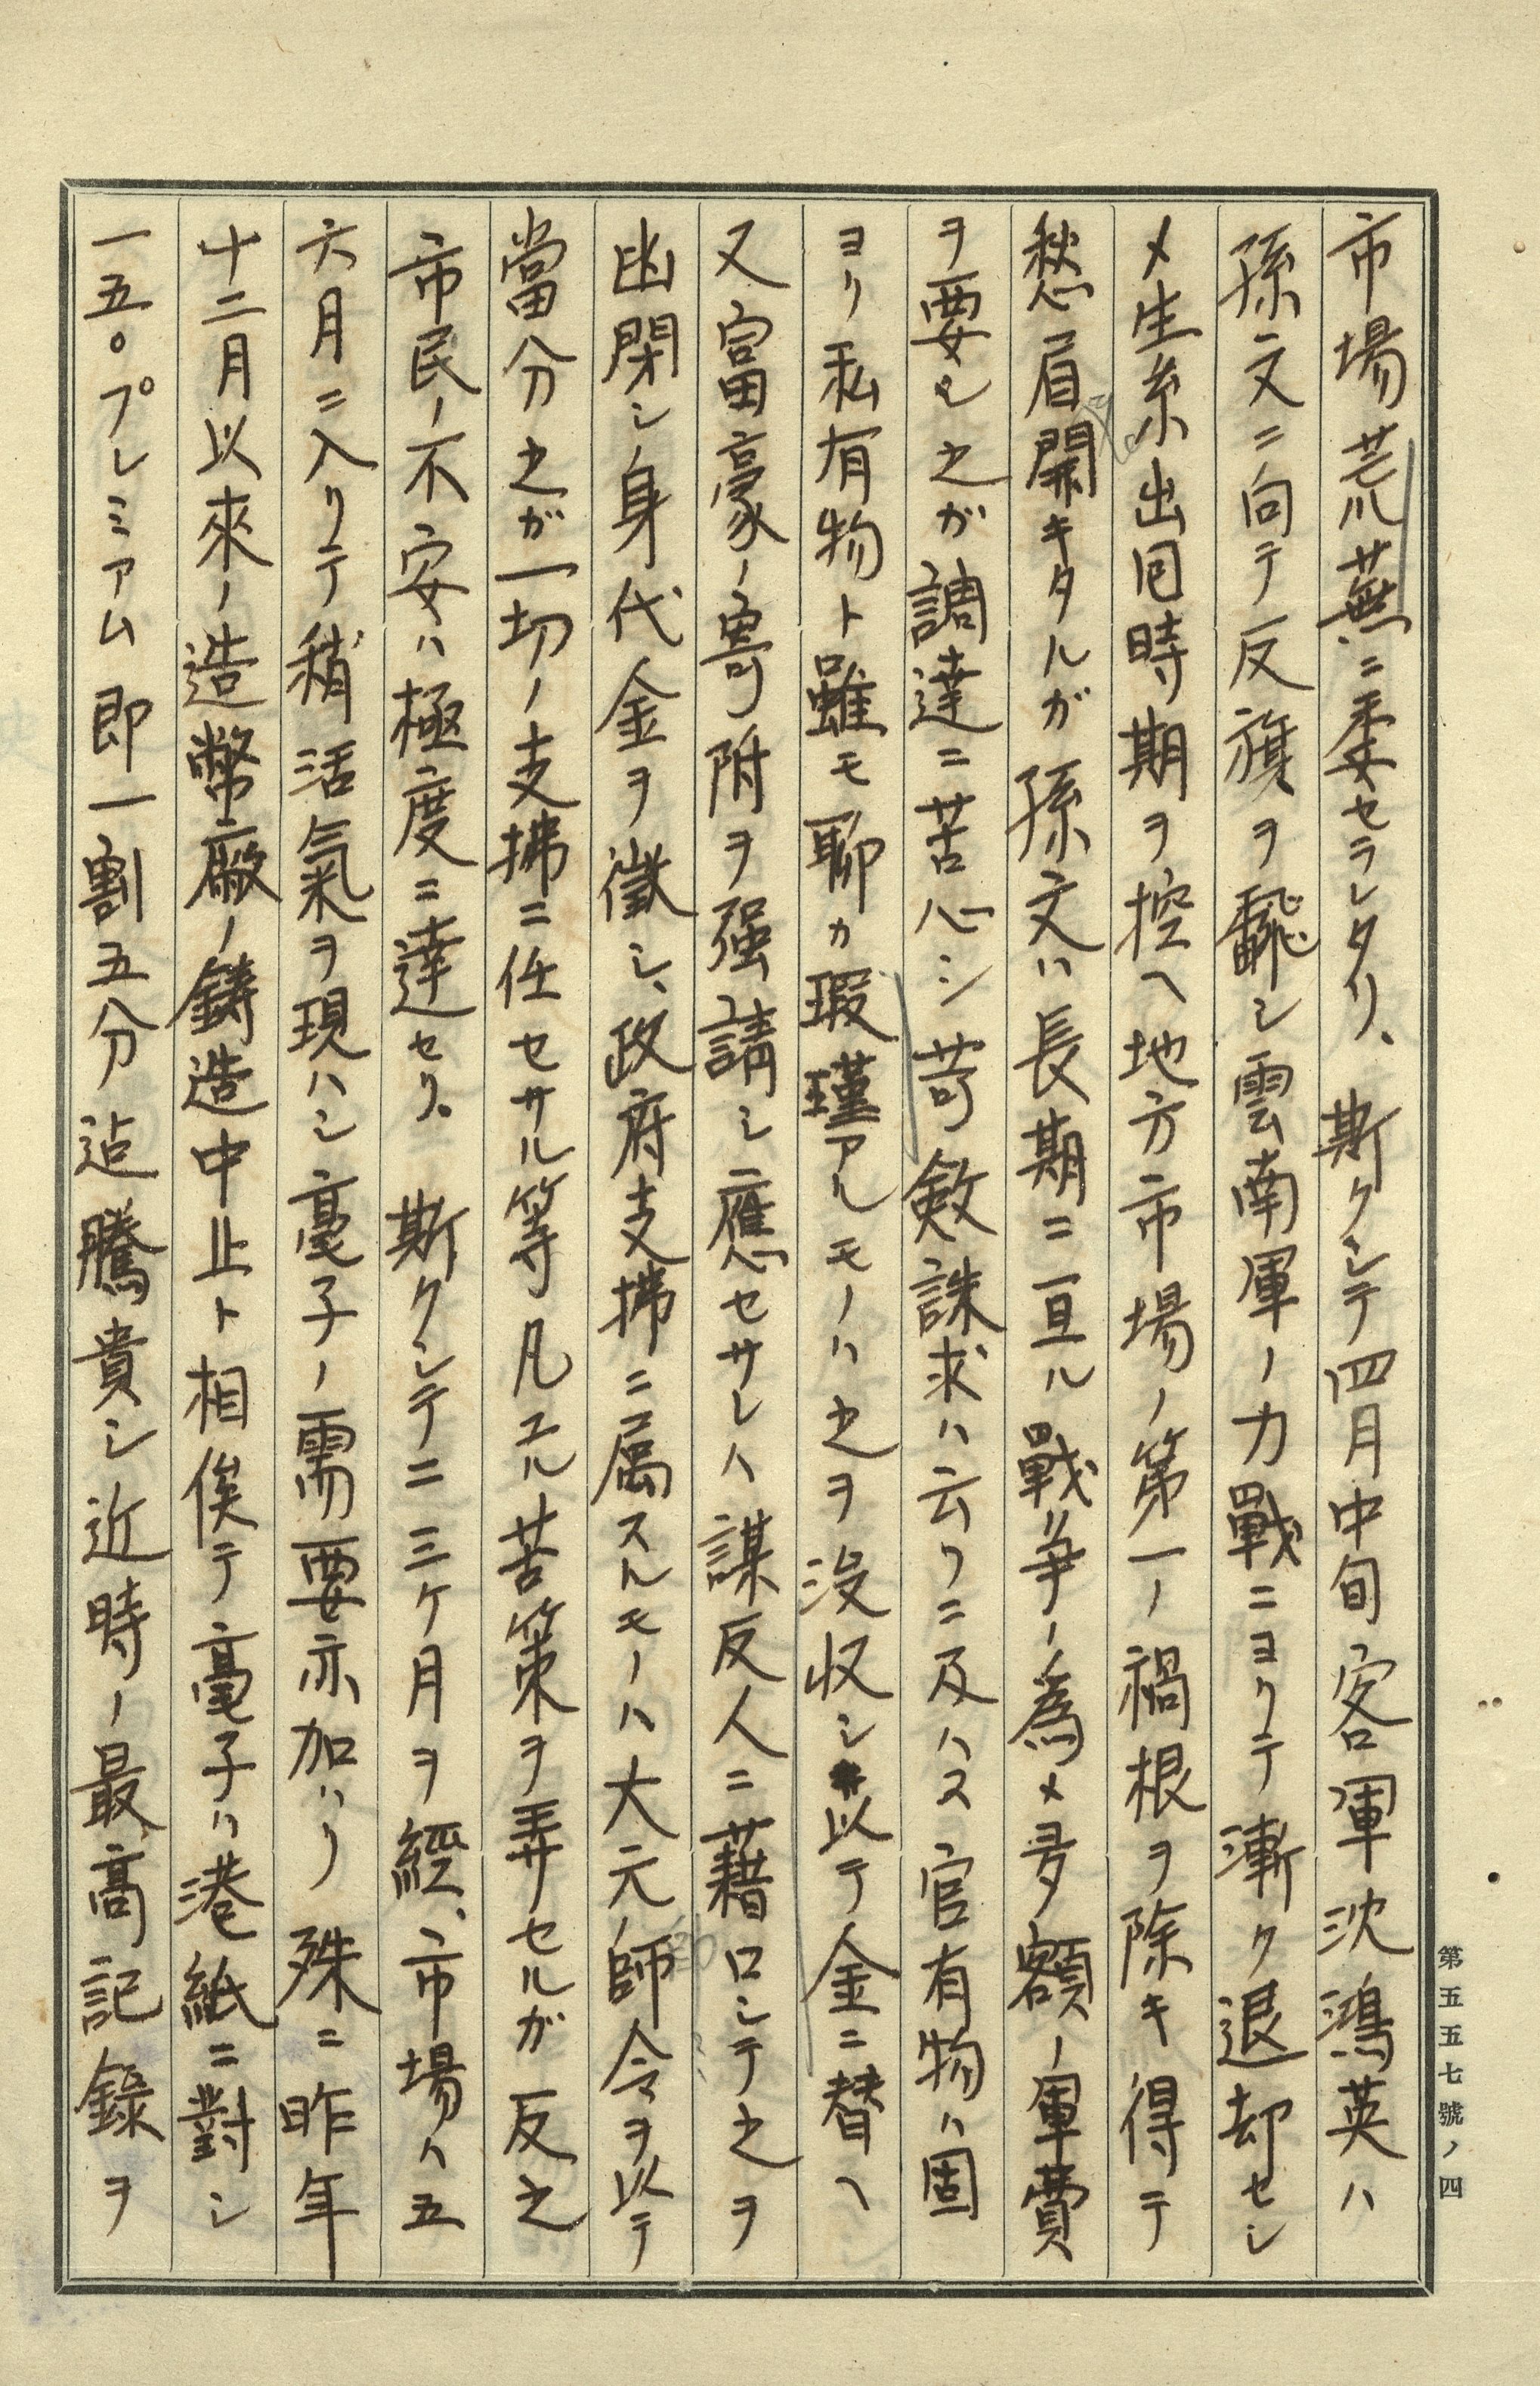 市場荒蕪ニ委セラレタリ、斯クシテ四月中旬客軍沈鴻英ハ
孫文ニ向テ反旗ヲ飜シ雲南軍ノ力戰ニヨリテ漸ク退却セシ
メ生糸出囘時期ヲ控ヘ地方市場ノ第一ノ禍根ヲ除キ得テ
愁眉開キタルガ孫文ハ長期ニ亘ル戰爭ノ為メ多額ノ軍費
ヲ要シ之ガ調達ニ苦心シ苛斂誅求ハ云フニ及ハス官有物ハ固
ヨリ私有物ト雖モ聊カ瑕瑾アルモノハ之ヲ没収シ以テ金ニ替ヘ
又富豪ノ寄附ヲ强請シ應セサレハ謀反人ニ藉口シテ之ヲ
幽閉シ身代金ヲ徴シ、政府支拂ニ属スルモノハ大元帥令ヲ以テ
當分之ガ一切ノ支拂ニ任セサル等凡ユル苦策ヲ弄セルガ反之
市民ノ不安ハ極度ニ達セリ。斯クシテ二三ケ月ヲ經、市場ハ五
六月ニ入リテ稍活氣ヲ現ハシ毫子ノ需要亦加ハリ殊ニ昨年
十二月以來ノ造幣廠ノ鋳造中止ト相俟テ毫子ハ港紙ニ對シ
一五〇プレミアム即一割五分迠騰貴シ近時ノ最高記録ヲ
第五五七號ノ四